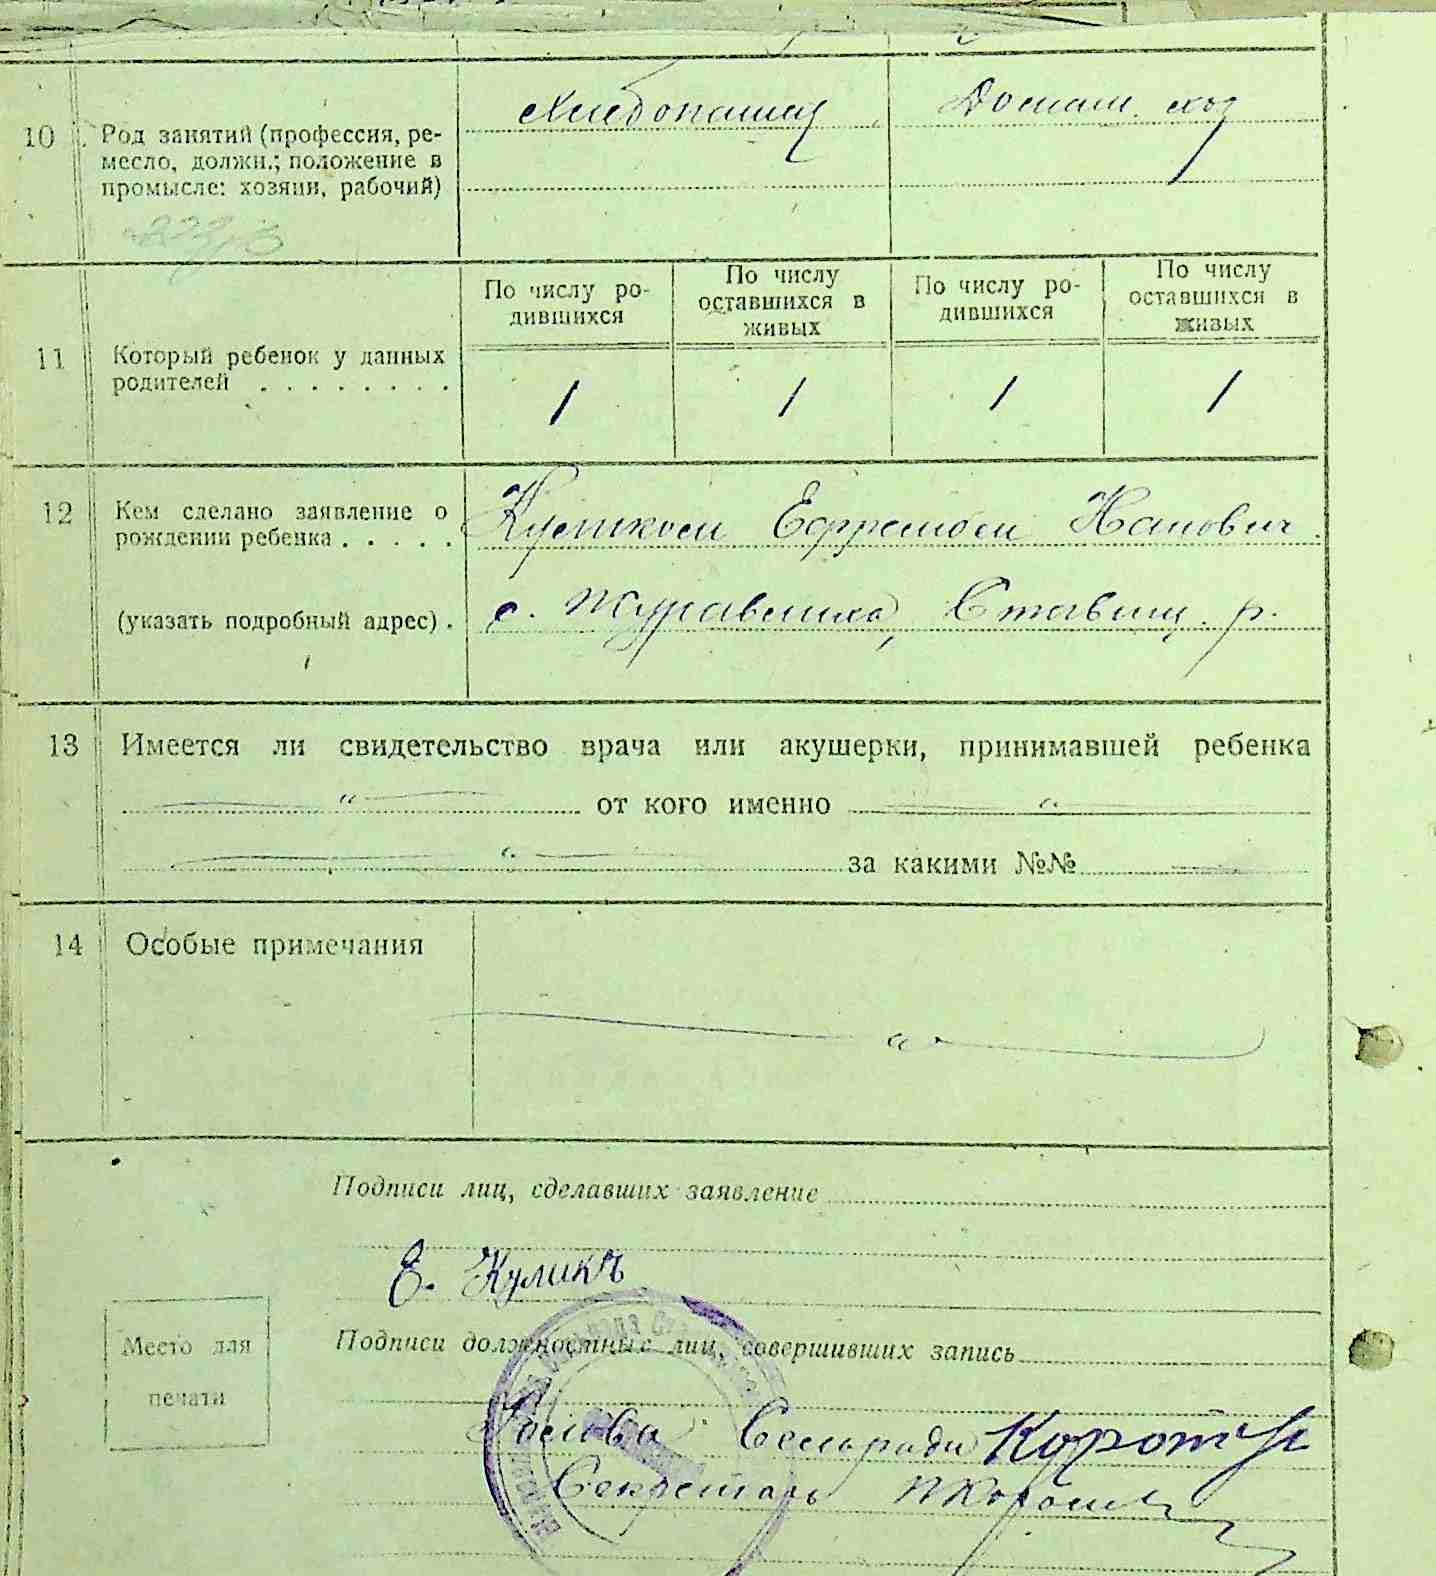 10
Род занятий (профессия, ре-
месло, должн.; положение в
промысле: хозяин, рабочий)
Хлебопашец
Домаш. хоз
По числу ро-
дившихся
По числу
оставшихся в
живых
По числу ро-
дившихся
По числу
оставшихся в
живых
11
Который ребенок у данных
родителей . . . . . . . .
1 1 1 1
12
Кем сделано заявление о
рождении ребенка . . . . .
Иванович
(указать подробный адрес) .
с. Журавлиха, Ставищ. р.
13
Имеется ли свидетельство врача или акушерки, принимавшей ребенка
от кого именно
за какими №№
14
Особые примечания
Подписи лиц, сделавших заявление
Е. Куликъ
Место для
печати
Подписи должностных лиц, совершивших запись
Голова Сельради
Секретарь